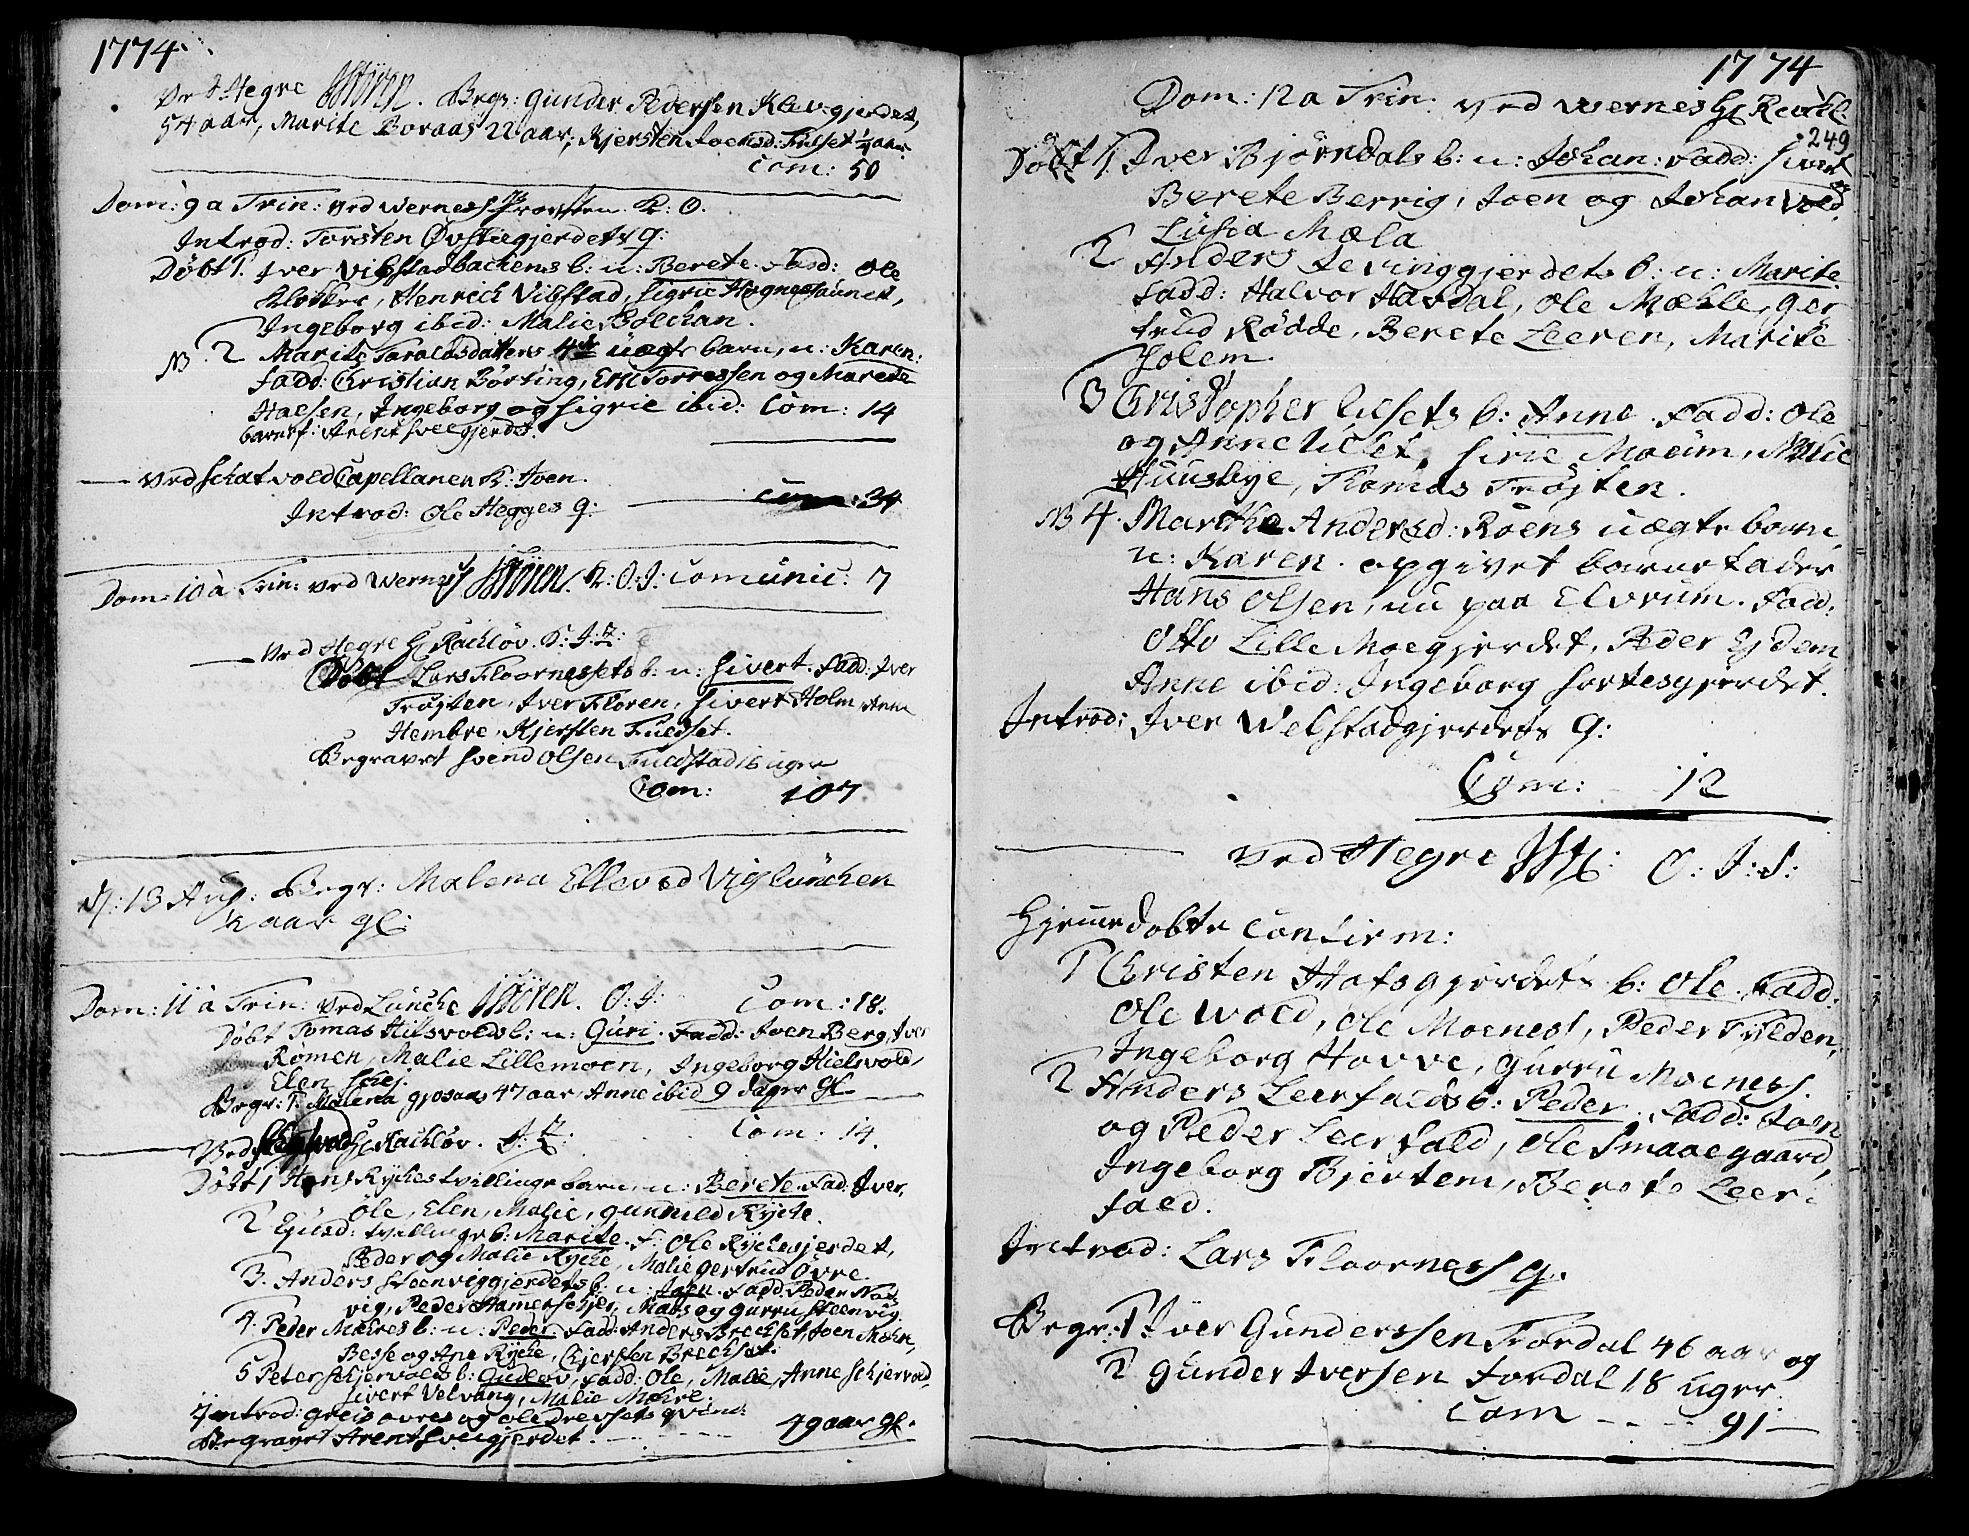 1774
Ved Hegre Støren. Begr: Gunder Pedersen Klevgjerdet,
54 aar, Marite Boraas 22 aar, Kjersten Joensd: Fulset ¼ aar
Com: 50
Dom: 9 a Trin: ved Wernes Provsten. K: O.
Introd: Torsten Øvstiegjerdets q:
Døbt 1. Iver Vibstadbachens b: n: Berete. Fadd: Ole
Klokker, Henrich Vibstad, Sigrie Hognessaunet,
Ingeborg ibid: Malie Bolchan.
NB. 2 Marite Taraldsdatters 4de uægte barn, n: Karen.
Fadd: Christian Børting, Eric Torressen og Marete
Halsen, Ingeborg og Sigrie ibid: Com: 14
barnef: Arent Sveegjerdet.
Ved Schatvold Capellanen K: Joen.
Introd: Ole Hegges q: Com: 34
Dom: 10 à Trin: ved Wernes Støren. K: O: J: Comunic: 7
Ved Hegre H Rachløv. K: J:
Døbt Lars Floornessets b: n: Sivert. Fadd: Iver
Trøjten, Iver Floren, Sivert Holm, Anne
Hembre, Kjersten Fuldset.
Begravet Svend Olsen Fuldstad 16 uger
Com: 107
D: 13 Aug: Begr: Malena Elleved Viglunchen
½ aar gl:
Dom: 11 à Trin: ved Lunche Støren. O: J: Com: 18.
Døbt Tomas Hilsvolds b: n: Guri. Fadd: Joen Berg, Iver
Rømen, Malie Lillemoen, Ingeborg Hielsvold,
Elen Schej.
Begr: 1. Malena Gjosaas 47 aar, Anne ibid 9 dager gl.
Ved Rachløv. J: Com: 14.
Døbt 1 Hans Ryches tvillinge barn, n: Berete. Fad: Iver,
Ole, Elen, Malie, Gunnild Ryche.
2 Ejusd: tvillinge b: Marite. F: Ole Rychesjerdet,
Peder og Malie Ryche, Malie Gertrud Øvre.
3. Anders Steenviggjerdets b: n: Joen. Fadd: Peder
vig, Peder Hamerschjer, Mats og Gurru Steenvig
4. Peder Mæhres b: n: Peder Fadd: Anders Brechset, Joen Mæhre,
Besse og Ane Ryche, Kjersten Brechset.
5 Peter Schjervolds b: Gudlov, Fadd: Ole, Malie, Anne Schjervold,
Sivert Velvang, Malie Mæhre.
Introd: Greis Øvres og Ole Drevsets qvind:
Begravet Arent Sveigjerdet. 49 aar gl.
1774
249
Dom: 12 a Trin. Ved Wernes H Rachl:
Døbt 1. Iver Bjørndals b: n: Johan: Fadd: Sivert og
Berete Berrig, Joen og Johan Vold
Lusia Mæla
2 Anders Levinggjerdets b: n: Marite.
Fadd: Halvor Havdal, Ole Mæhle, Ger
trud Rødde, Berete Leeren, Marite
Holem.
3 Christopher Ulsets b: Anne. Fadd: Ole
og Anne Ulset, Sirie Moeum, Malie
Huusbye, Thomas Trøjten.
NB 4. Marthe Andersd: Røens uægte barn
n: Karen. opgivet barnefader
Hans Olsen, nu paa Elvrum. Fadd:
Otto Lille Moegjerdet, Peder Ejdem
Anne ibid: Ingeborg Sortesgjerdet.
Introd: Iver Welstadgjerdets q:
Com: 12
Ved Hegre O: J: S:
Hjemmedøbte Confirm:
1 Christen Hofsgjerdets b: Ole. Fadd:
Ole Wold, Ole Moenes, Peder Tylden,
Ingeborg Hovve, Gurru Moenes.
2 Anders Leerfalds b: Peder. Fadd: Joen
og Peder Leerfald, Ole Smaaegaard,
Ingeborg Bjertem, Berete Leer:
fald.
Introd: Lars Floornes q.
Begr: 1 Iver Gunderssen Fordal 46 aar og
2 Gunder Iversen Fordal 18 uger
Com - - - - 91 -